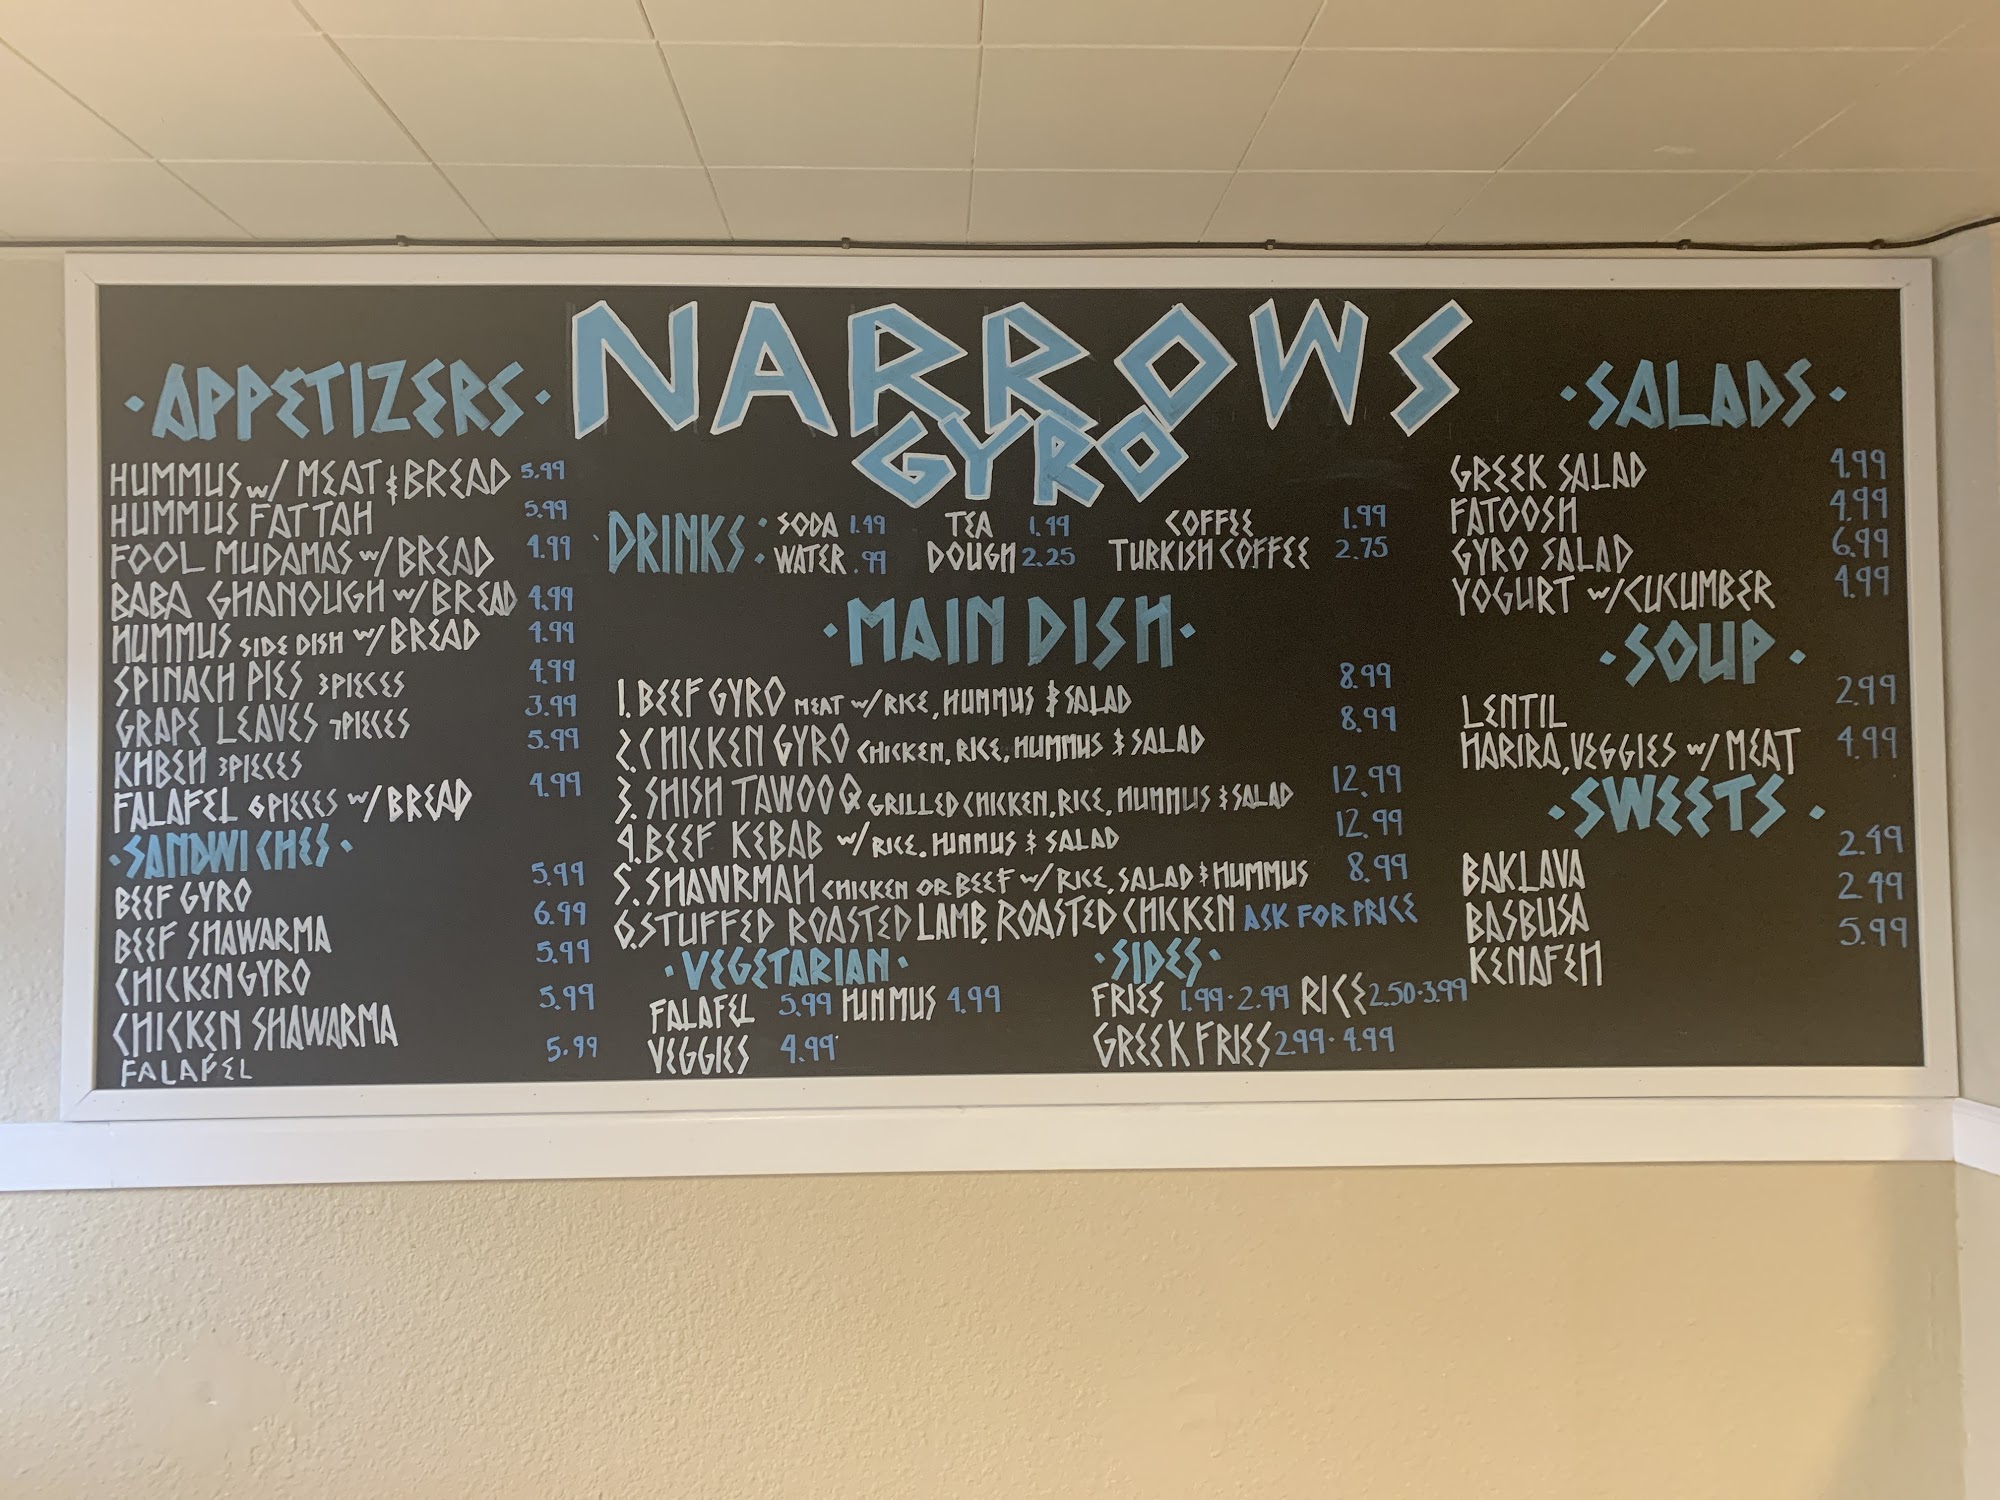 NARROWS
GYRO
·APPETIZERS·
HUMMUS w/ MEAT & BREAD 5.99
HUMMUS FATTAH 5.99
FOOL MUDAMAS w/ BREAD 4.99
BABA GHANOUGH w/ BREAD 4.99
HUMMUS SIDE DISH w/ BREAD 4.99
SPINACH PIES 3PIECES 4.99
GRAPE LEAVES 7PIECES 3.99
KHBEH 3PIECES 5.99
FALAFEL 6PIECES w/ BREAD 4.99
·SANDWICHES·
BEEF GYRO 5.99
BEEF SHAWARMA 6.99
CHICKEN GYRO 5.99
CHICKEN SHAWARMA 5.99
FALAFEL 5.99
DRINKS:
SODA 1.49 TEA 1.49 COFFEE 1.99
WATER .99 DOUGH 2.25 TURKISH COFFEE 2.75
·MAIN DISH·
1. BEEF GYRO MEAT w/ RICE, HUMMUS & SALAD 8.99
2. CHICKEN GYRO CHICKEN, RICE, HUMMUS & SALAD 8.99
3. SHISH TAWOOQ GRILLED CHICKEN, RICE, HUMMUS & SALAD 12.99
4. BEEF KEBAB w/ RICE, HUMMUS & SALAD 12.99
5. SHAWRMAH CHICKEN OR BEEF w/ RICE, SALAD & HUMMUS 8.99
6. STUFFED ROASTED LAMB, ROASTED CHICKEN ASK FOR PRICE
·VEGETARIAN·
FALAFEL 5.99 HUMMUS 4.99
VEGGIES 4.99
·SIDES·
FRIES 1.99·2.99 RICE 2.50·3.99
GREEK FRIES 2.99·4.99
·SALADS·
GREEK SALAD 4.99
FATOOSH 4.99
GYRO SALAD 6.99
YOGURT w/ CUCUMBER 4.99
·SOUP·
LENTIL 2.99
HARIRA, VEGGIES w/ MEAT 4.99
·SWEETS·
BAKLAVA 2.49
BASBUSA 2.49
KENAFEH 5.99